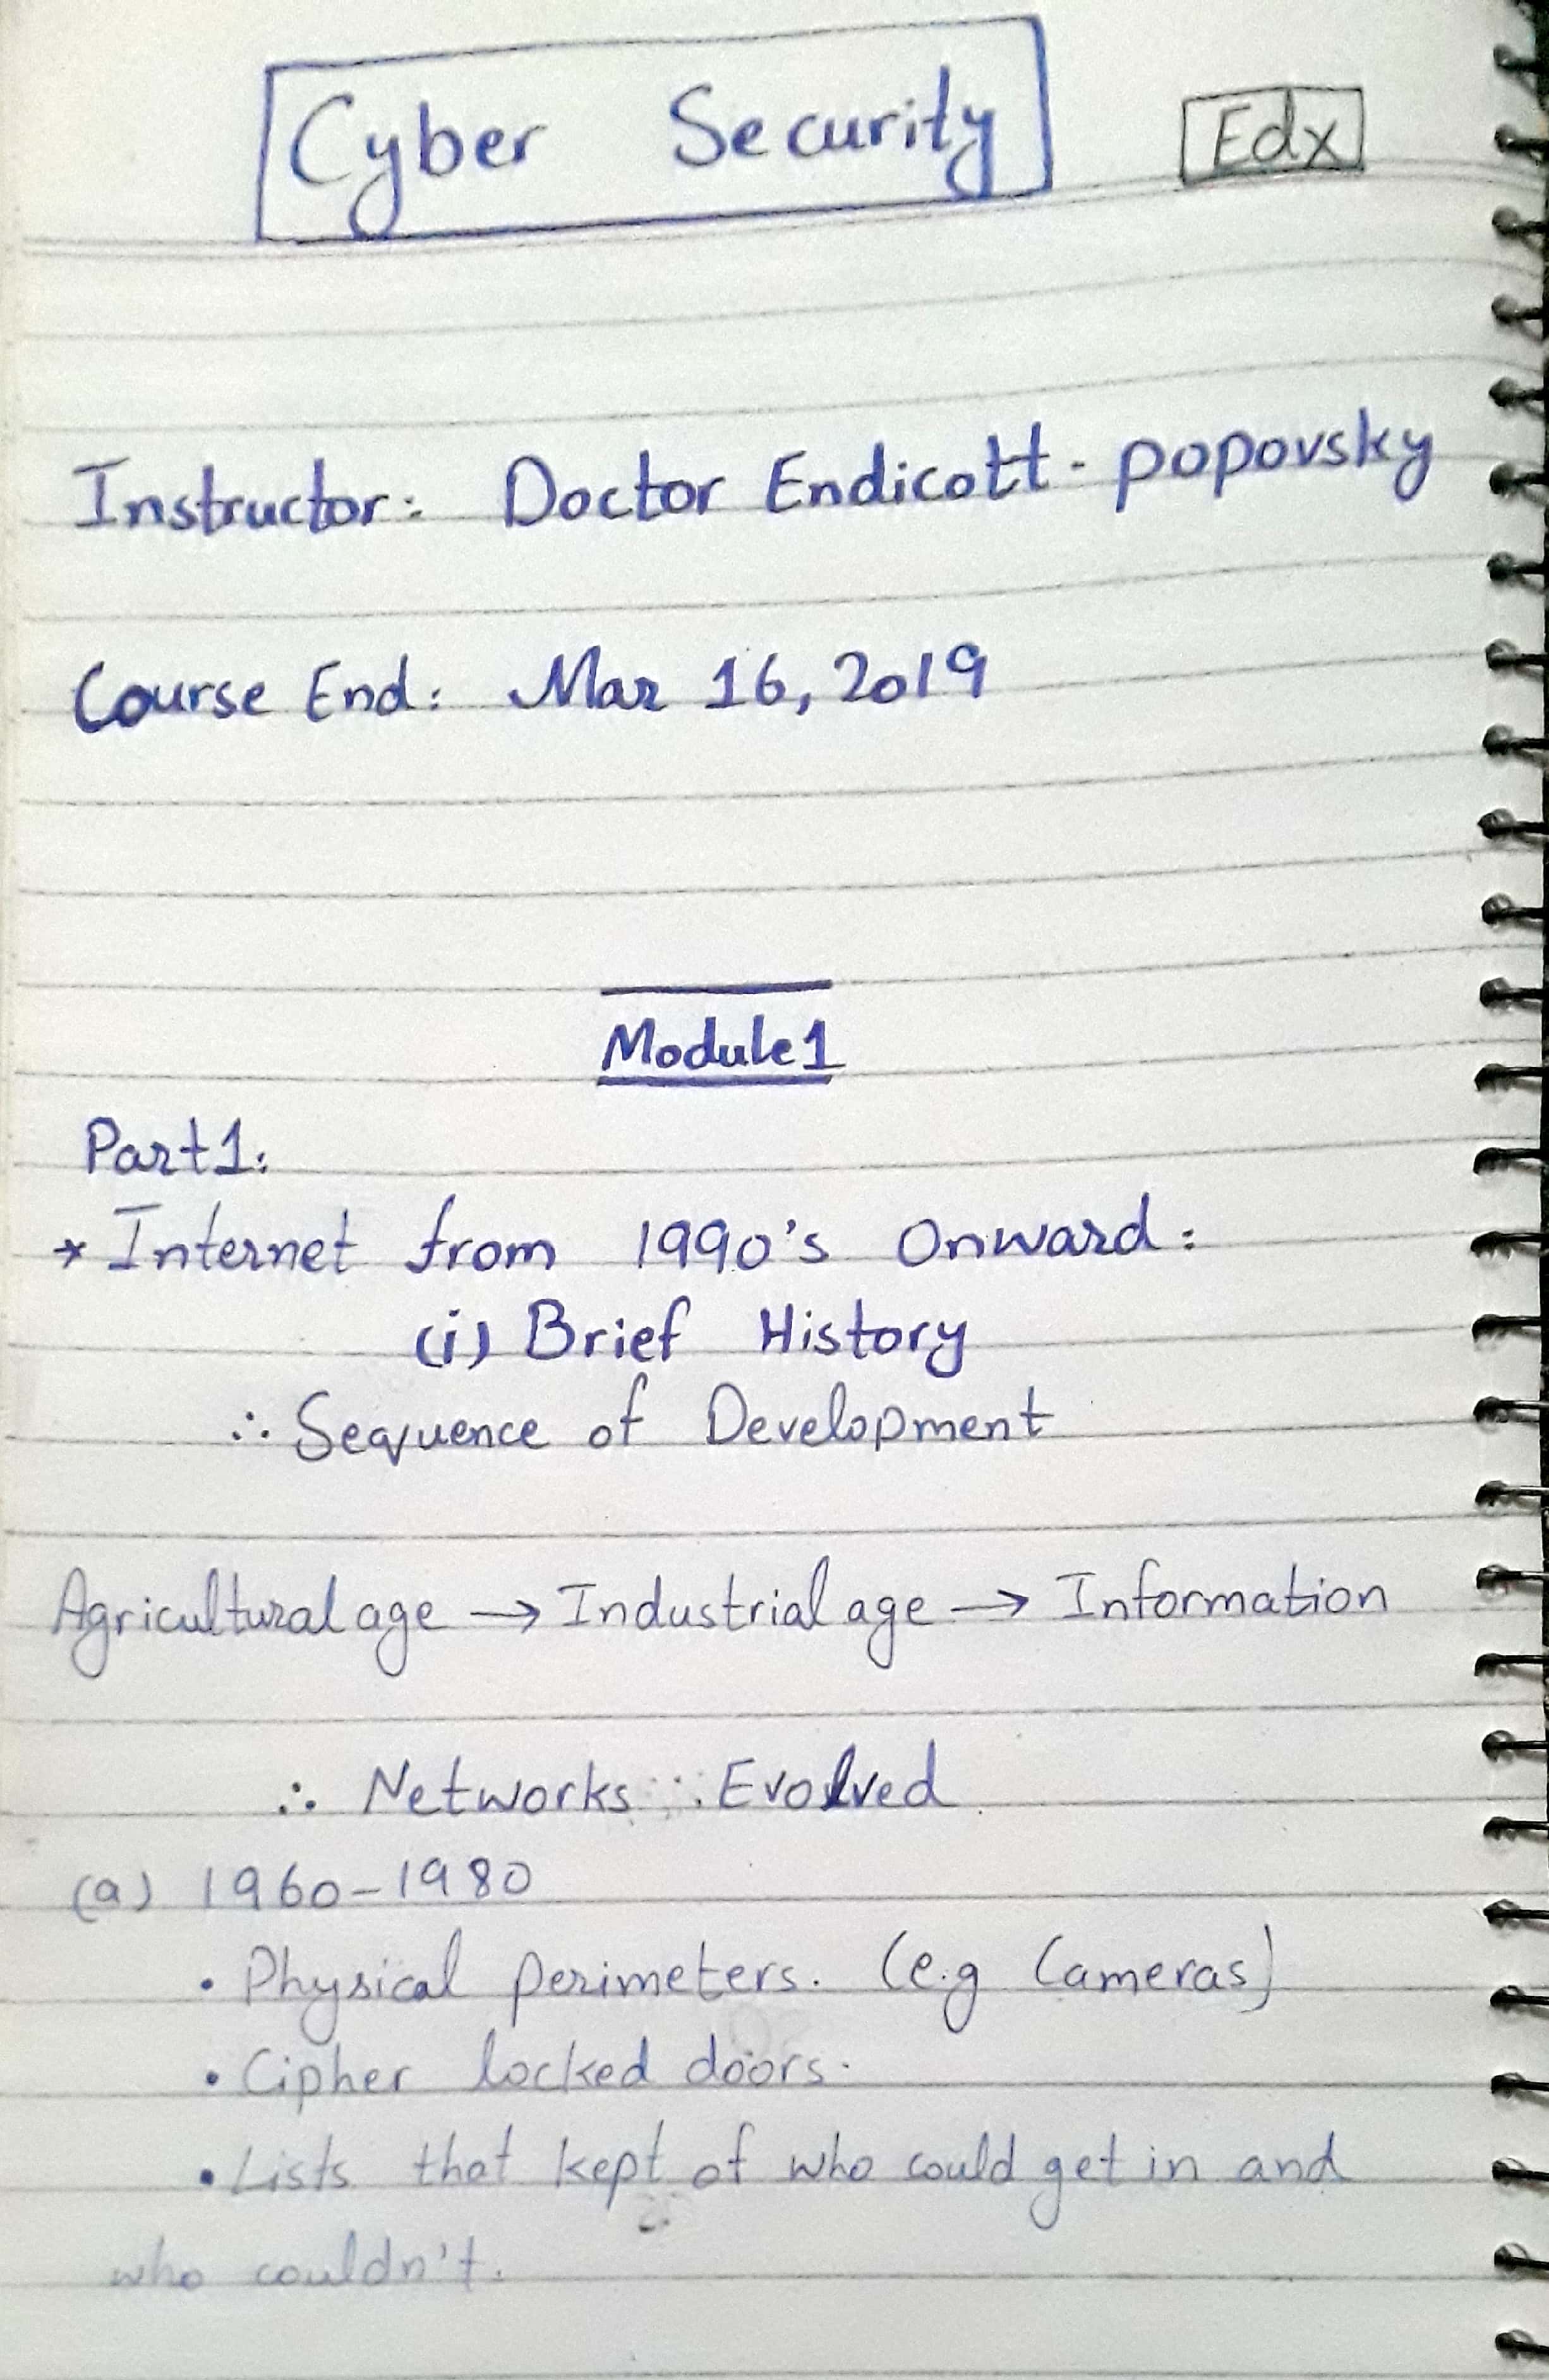 Cyber Security Edx
Instructor: Doctor Endicott-popovsky
Course End: Mar 16, 2019
Module 1
Part 1:
* Internet from 1990's Onward:
(i) Brief History
∴ Sequence of Development
Agricultural age → Industrial age → Information
∴ Networks Evolved
(a) 1960-1980
• Physical perimeters. (e.g Cameras)
• Cipher locked doors.
• Lists that kept of who could get in and
who couldn't.